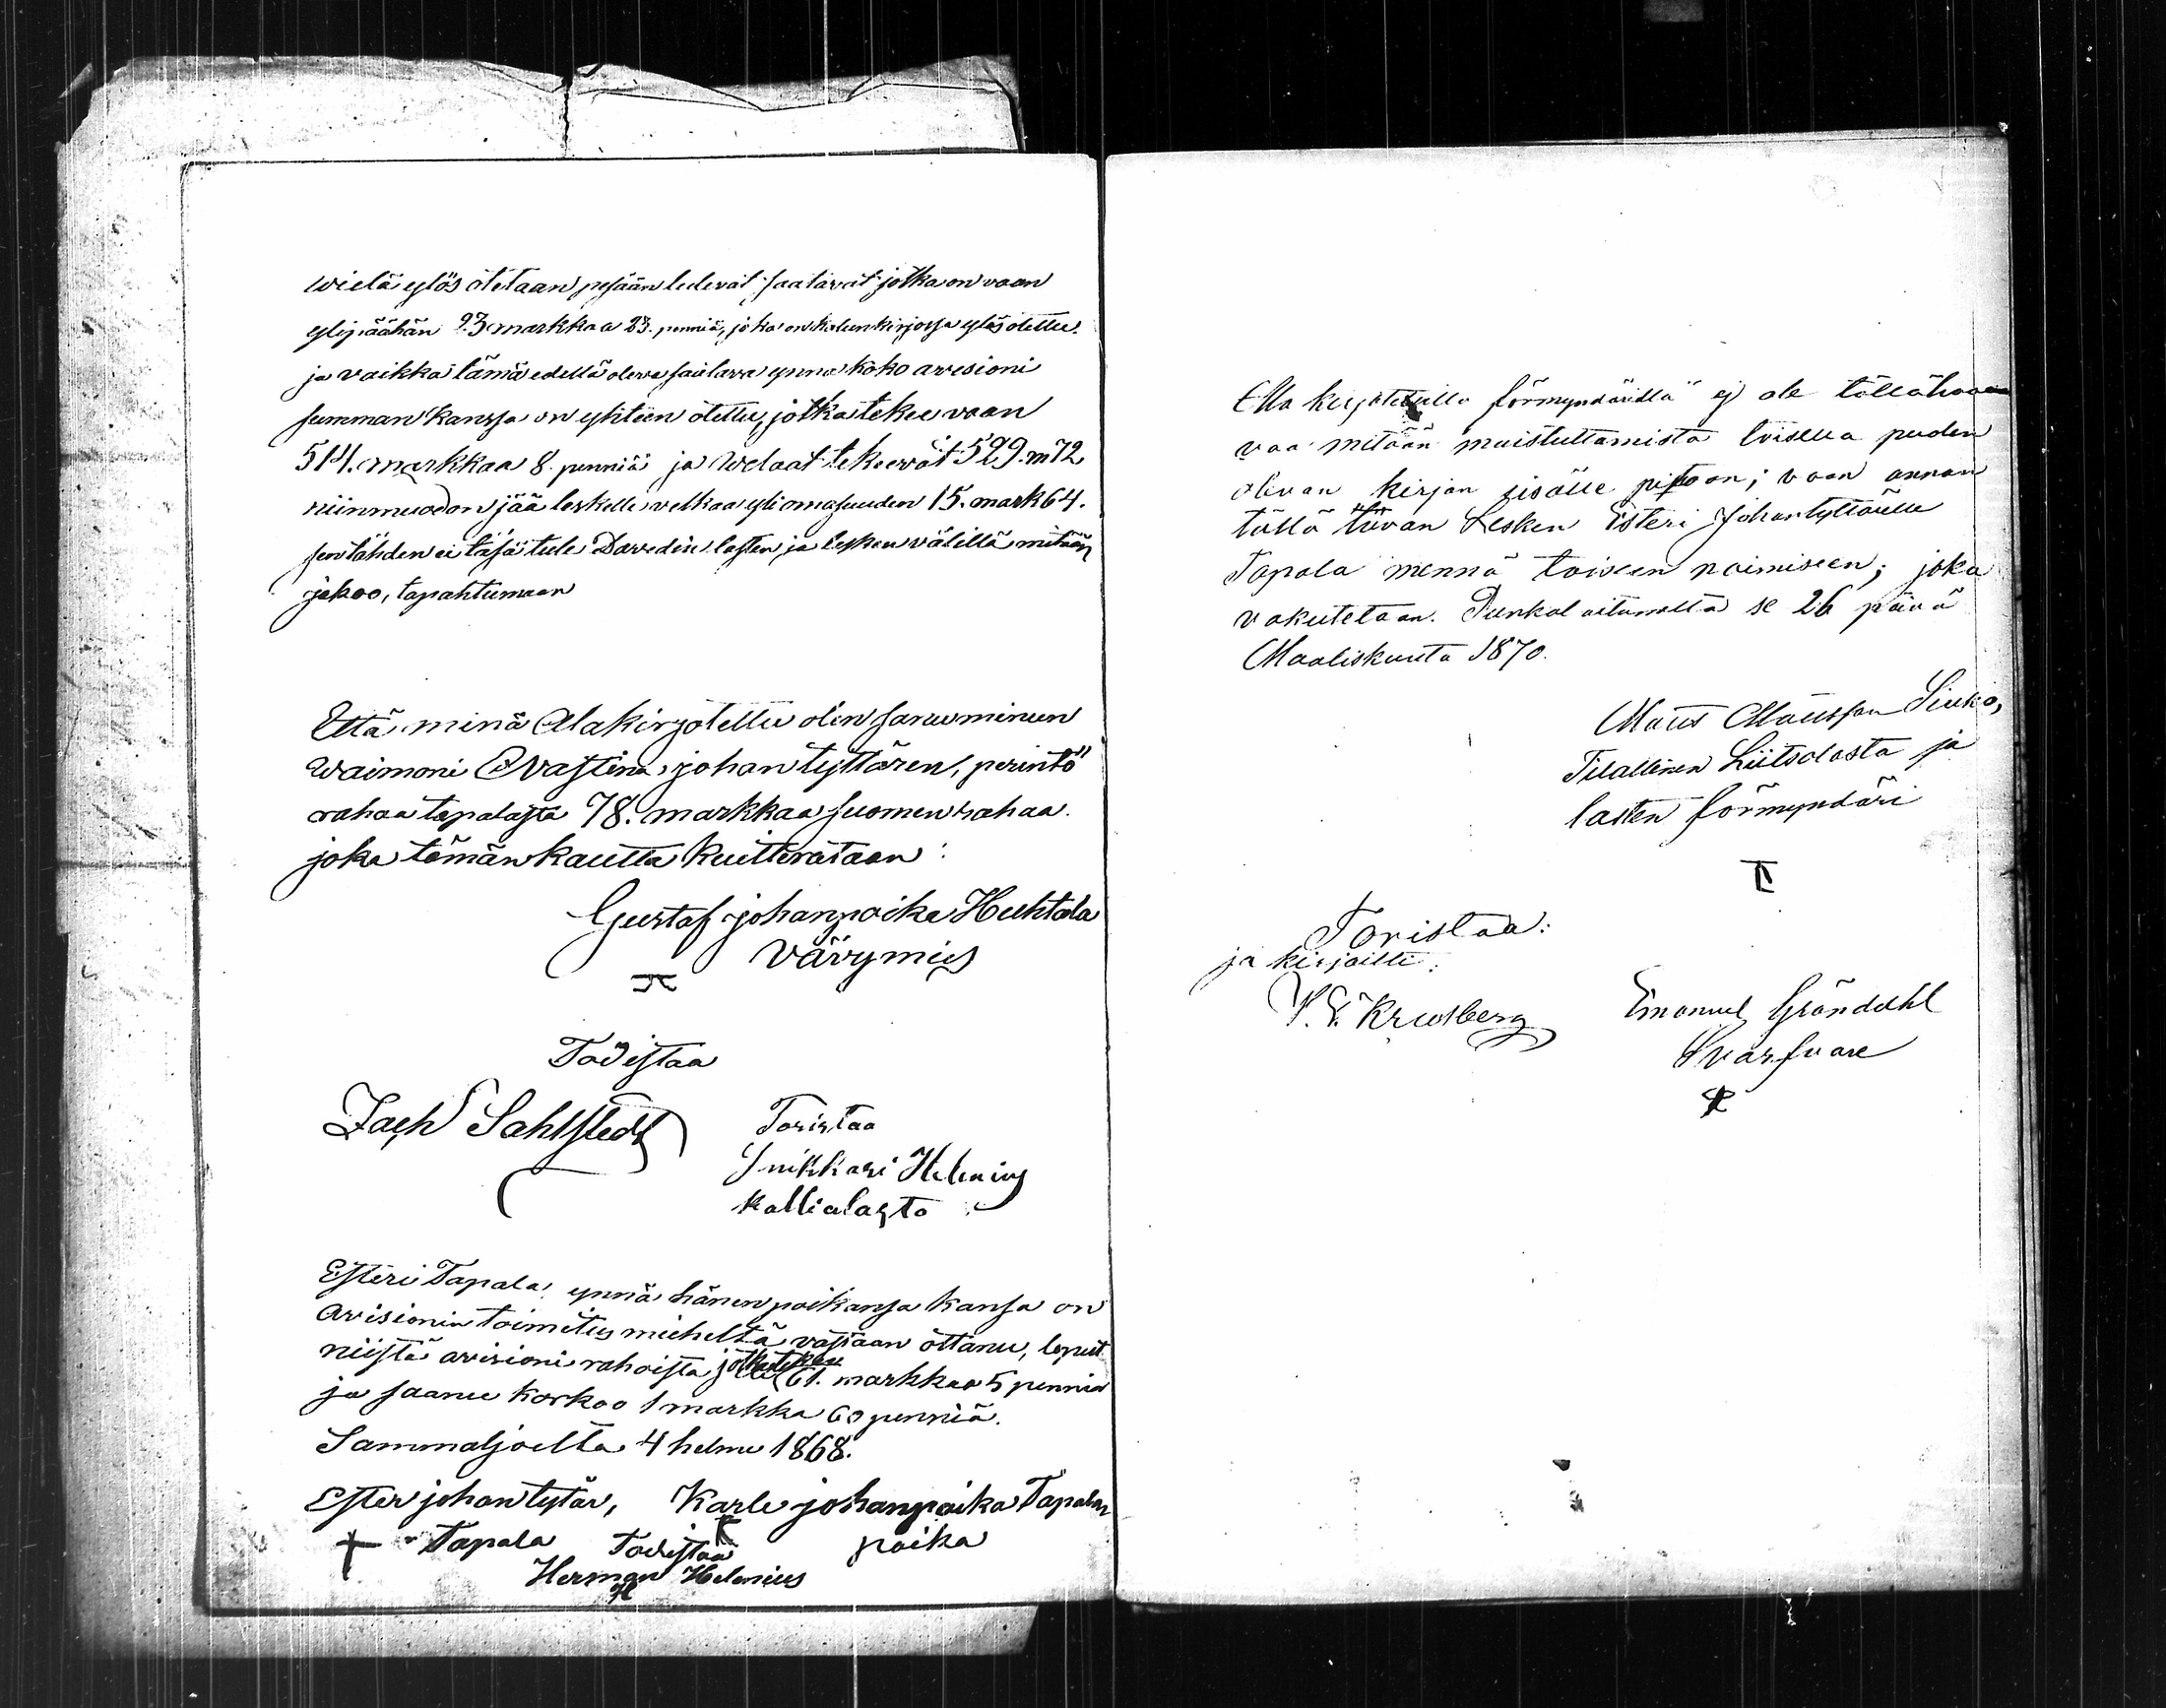 wielä ylös otetaan pesään tulevat saatavat jotka on vaan
ylipäähän 23 markkaa 23. penniä, joka on kalunkirjossa ylös otettu.
ja vaikka tämä edellä oleva saatava ynnä koko avisioni
summan kanssa on yhteen otettu, jotka tekee vaan
514. markkaa 8. penniä ja welaat tekeevät 529. m 72
niinmuodon jää leskelle velkaa yli omasuuden 15. mark 64.
sentähden ei täsä tule Davedin lasten ja lesken välillä mitään
jakoo, tapahtumaan
Että minä Alakirjotettu olen sanu minun
Waimoni Evastina johantyttären, perintö
rahaa tapalasta 78. markkaa suomen rahaa.
joka tämän kautta kuitterataan:
Gustaf johanpoika Huhtala
Värymies
Todistaa
Zach Sahlstedt
Toristaa
Snikkari Helenius
Kallialasta
Esteri Tapala ynnä hänen poikansa kansa on
avisionin toimitus mieheltä vastaan ottanu, loput
niistä avisioni rahoista jotka tekee 61. markkaa 5 penniä
ja saanu korkoo 1 markka 60 penniä.
Sammaljoelta 4 helmu 1868.
Ester johantytär, Karle johanpoika Tapalan
Tapala Todistaa poika
Herman Helenius
Alla kirjotetulla förmyndärillä ej ole
vaa mitään muistuttamista toisella puolen
olevan kirjan sisälle pitoon; vaan annan
tällä luvan Lesken Esteri Johantyttärelle
Tapala mennä toiseen naimiseen; joka
vakutetaan. Punkalaitumella se 26 päivä
Maaliskuuta 1870.
Matts Mattsson Siuko,
Tilallinen Liitsolasta ja
lasten förmyndäri
Toristaa:
ja kirjoitti:
Krusberg Emanuel Gröndahl